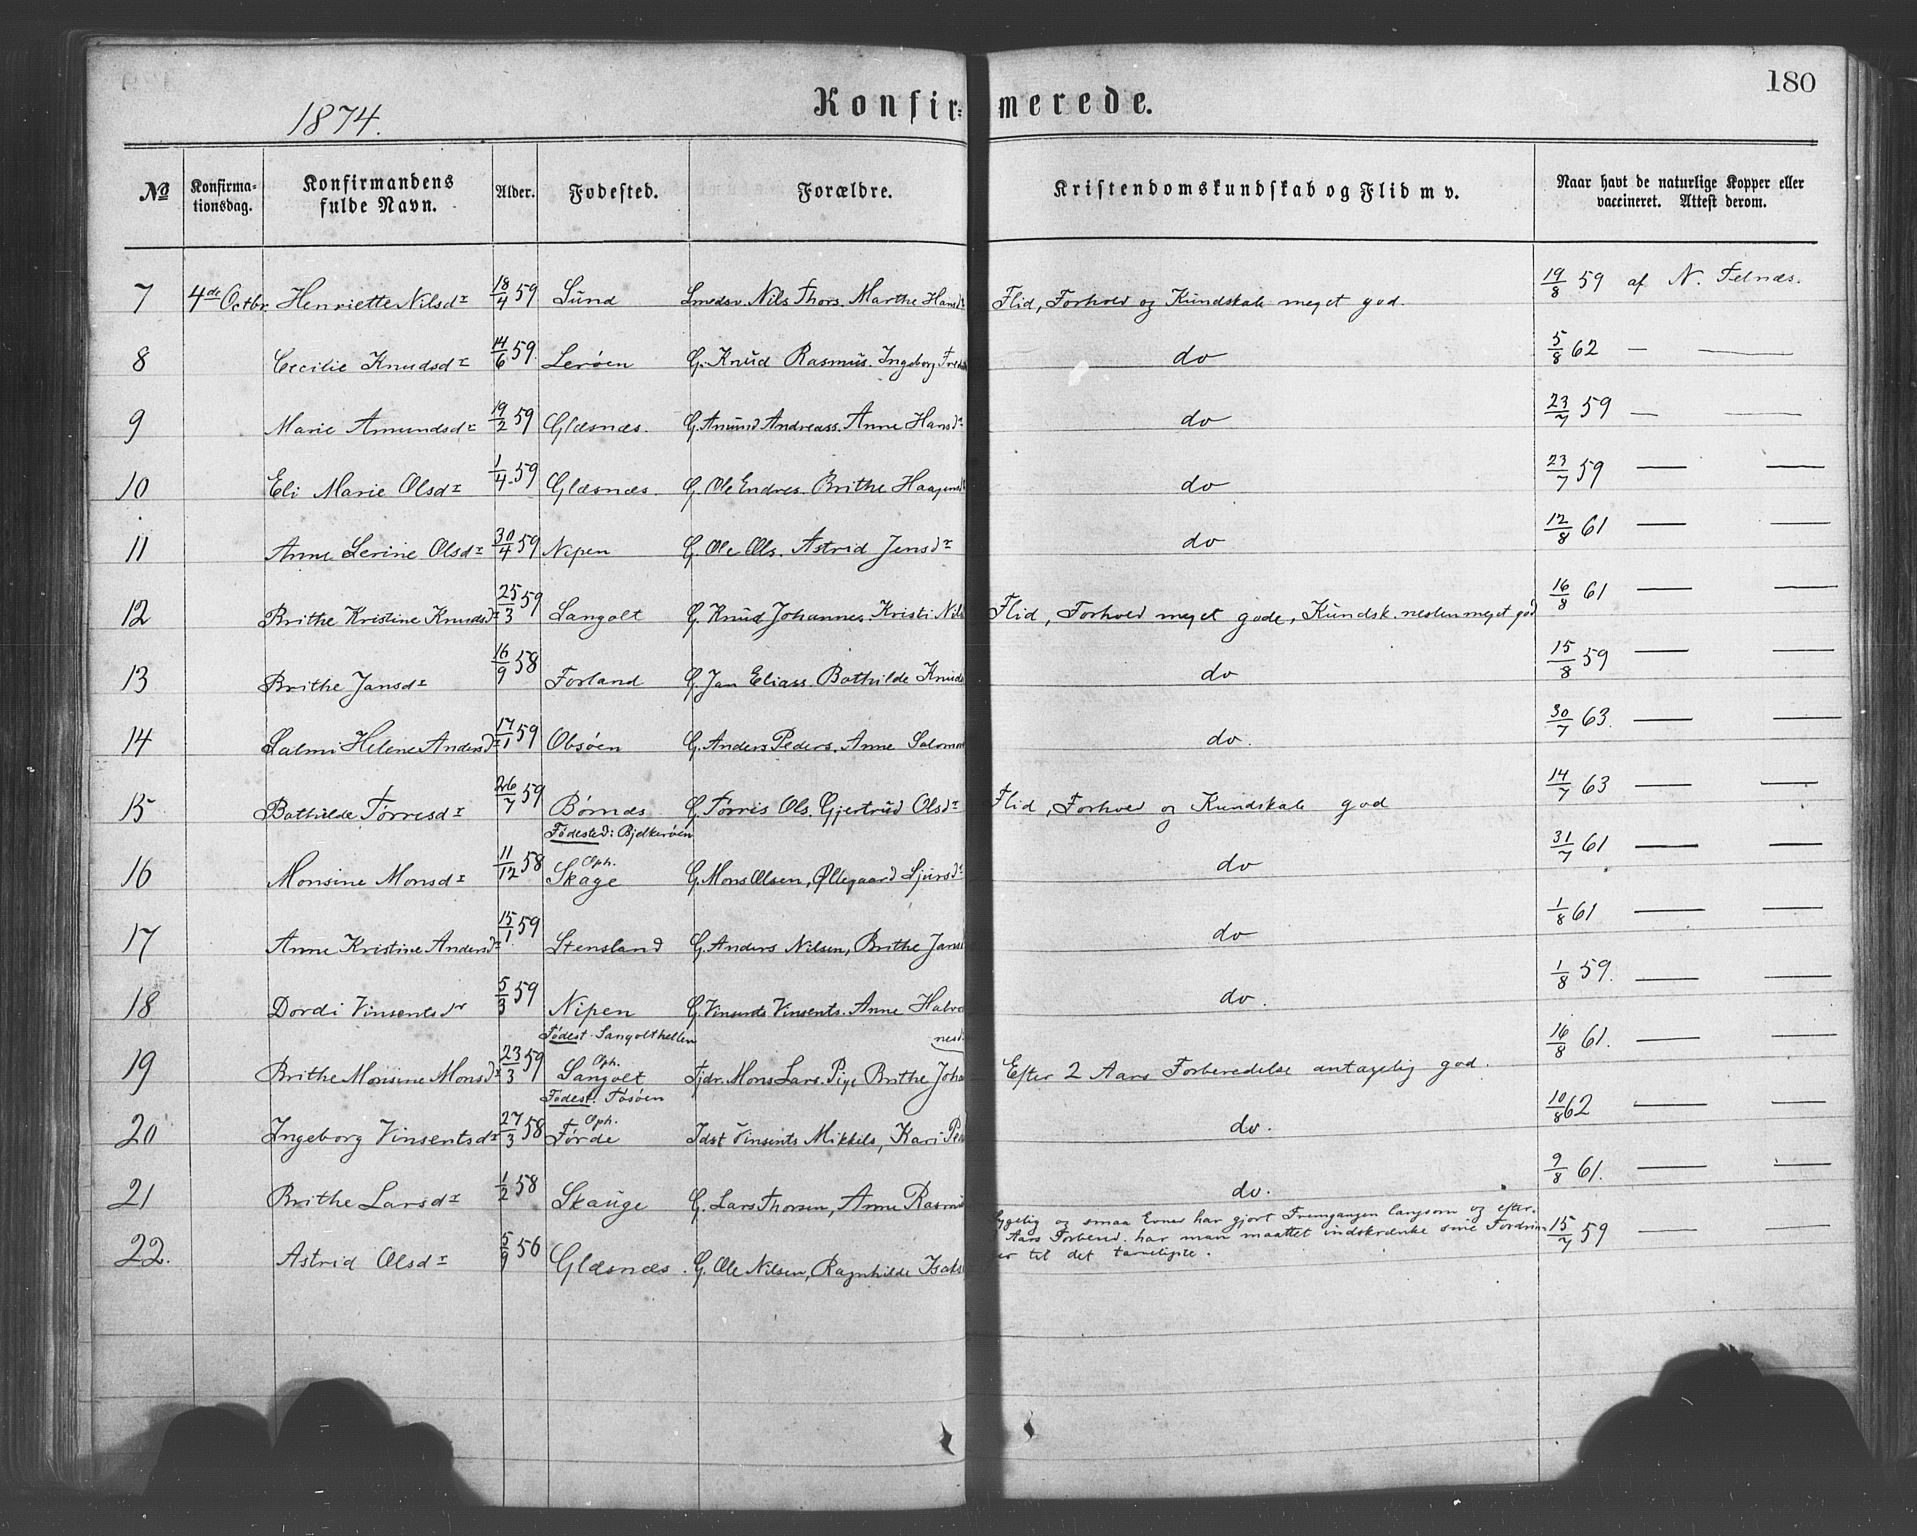 180
1874.
Konfirmerede.
No Konfirma-tionsdag. Konfirmandens fulde Navn. Alder. Fødested. Forældre. Kristendomskundskab og Flid m v. Naar havt de naturlige Kopper eller vaccineret. Attest derom.
7 4de Octbr. Henriette Nilsdr 18/4 59 Sund Nils Thors. Marthe Hansdr Flid, Forhold og Kundskab meget god. 19/8 59 af N. Telnæs.
8 Cecilie Knudsdr 14/6 59. Lerøen G. Knud Rasmus. Ingeborg do 5/8 62 — —
9 Marie Amundsdr 19/2 59 Glæsnæs. G. Amund Andreass. Anne Hansdr do 23/7 59 — —
10 Eli Marie Olsdr 1/4 59 Glæsnæs. G. Ole Endres. Brithe do 23/7 59 — —
11 Anne Serine Olsdr 30/4 59 Nipen G. Ole Ols. Astrid Jensdr do 12/8 61 — —
12 Brithe Kristine Knudsdr 25/3 59 Sangolt G. Knud Johannes. Kristi Nils Flid, Forhold meget gode, Kundsk. nesten meget god 16/8 61 — —
13 Brithe Jansdr 16/9 58 Forland G. Jan Eliass. Bathilde Knuds do 15/8 59 — —
14 Salmi Helene Andersdr 17/1 59 Obsøen G. Anders Peders. Anne Salomon do. 30/7 63. — —
15 Bathilde Tørresdr 26/7 59 Børnæs G. Tørris Ols. Gjertrud Olsdr Flid, Forhold og Kundskab god 14/7 63 — —
Fødested: Bjelkerøen
16 Monsine Monsdr 11/12 58 Oph. Skage G. Mons Olsen, Øllegaard Sjursdr do 31/7 61 — —
17 Anne Kristine Andersdr 15/1 59 Stensland G. Anders Nilsen, Brithe Jans do 1/8 61 — —
18 Dordi Vinsentsdr 5/3 59 Nipen G. Vinsents Vinsents. Anne Halvo do. 1/8 59. — —
Fødest. Sangolthellen nesd.
19 Brithe Monsine Monsdr 23/3 59 Oph. Sangolt Mons Lars. Pige Brithe Joha Efter 2 Aars Forberedelse antagelig god. 16/8 61. — —
Fødest. Tøsøen
20 Ingeborg Vinsentsdr 27/3 58 Oph. Førde Idst Vinsents Mikkels, Kari Pe do. 10/8 62 — —
21 Brithe Larsdr 1/2 58 Skauge G. Lars Thorsen, Anne Rasmus do. 9/8 61. — —
22. Astrid Olsdr 5/9 56 Glæsnæs. G. Ole Nilsen, Ragnhilde Isaks 15/7 59 — —
Sygelig og smaa Evner har gjort Fremgangen langsom og efter
Aars Forbered. har man maattet indskrænke sine Fordrin
er til det tarveligste.